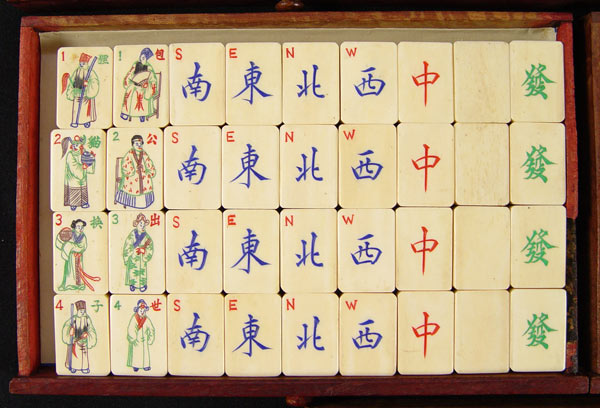 1 狸 1 包 S 南 E 東 N 北 W 西 中 發
2 貓 2 公 S 南 E 東 N 北 W 西 中 發
3 3 出 S 南 E 東 N 北 W 西 中 發
4 子 4 世 S 南 E 東 N 北 W 西 中 發